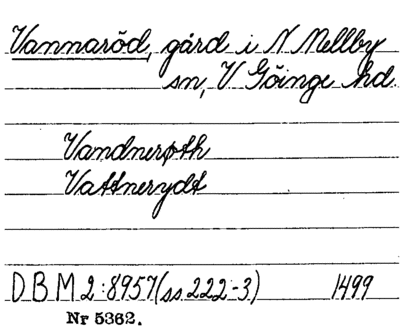 Vannaröd, gård i N Mellby
sn, V Göinge hd.
Vandnerøth
Vattnerydt
DBM 2:8957(ss 222-3) 1499
Nr 5362.